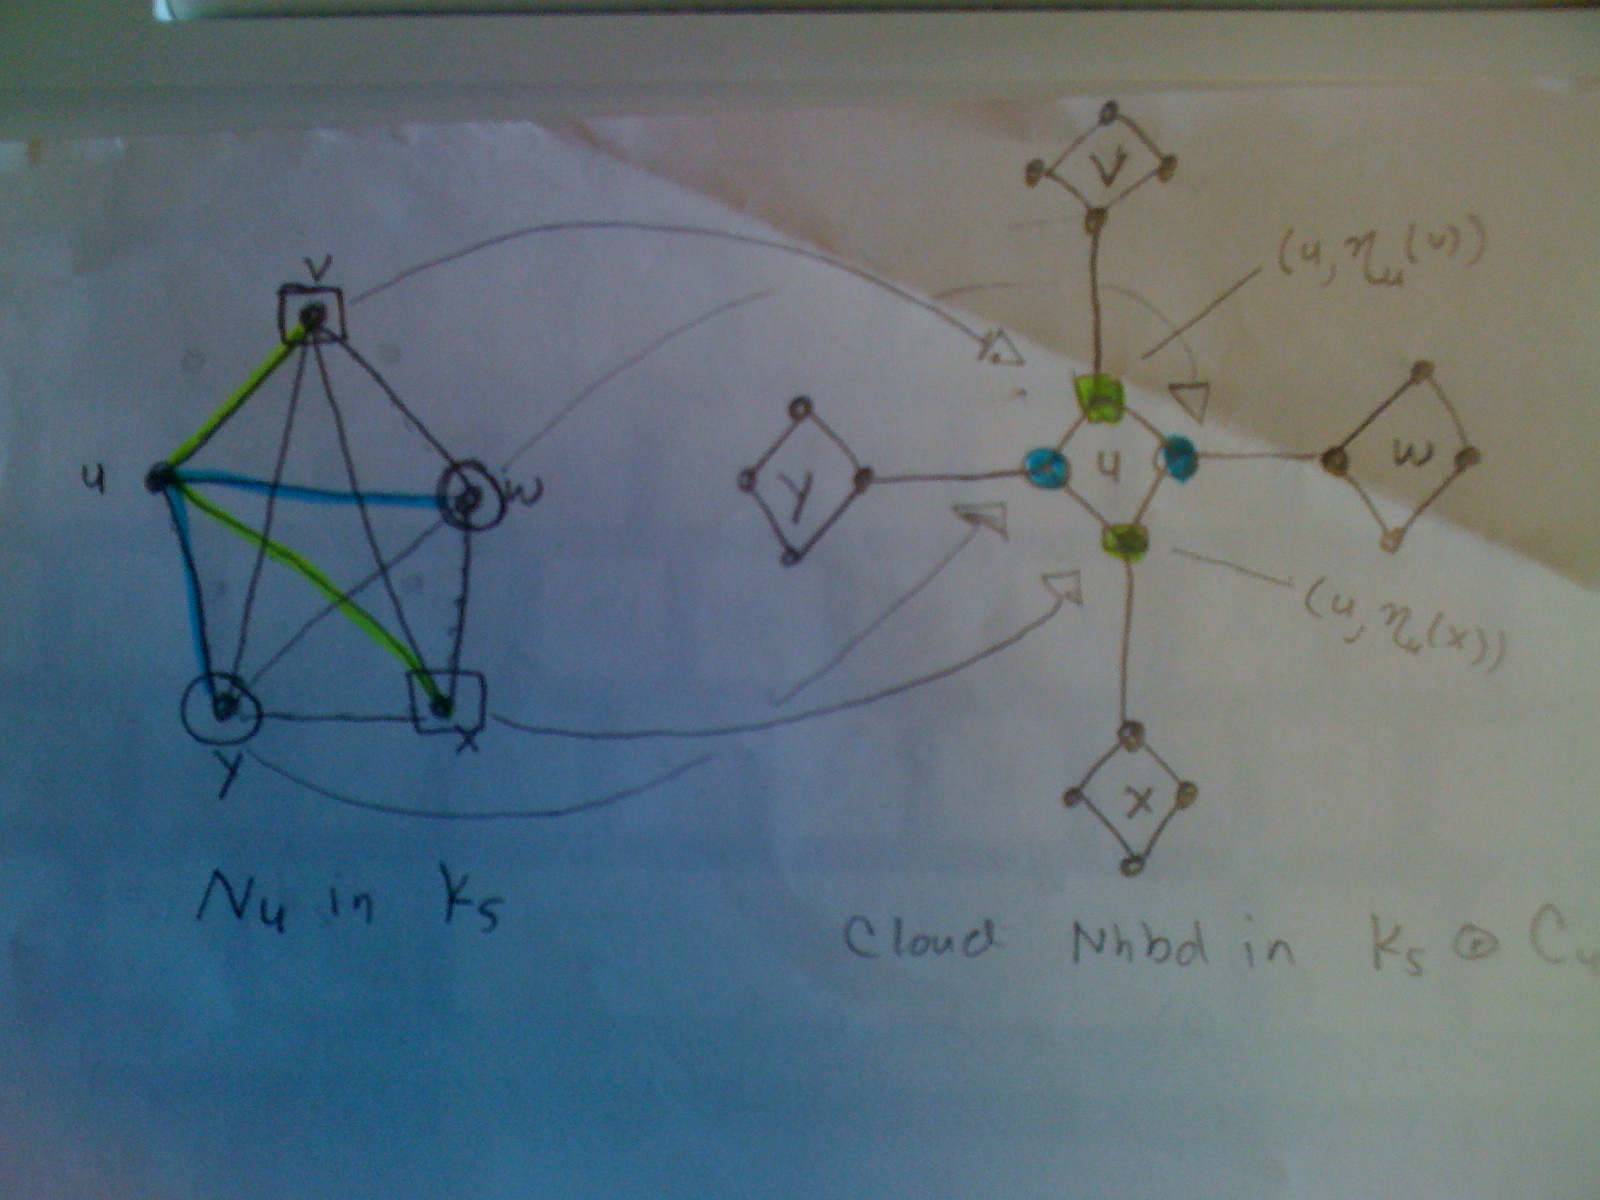 v
u
w
y
x
Nu in K5
v
(u, ηu(v))
y
u
w
(u, ηu(x))
x
Cloud Nhbd in K5 ⊙ C4